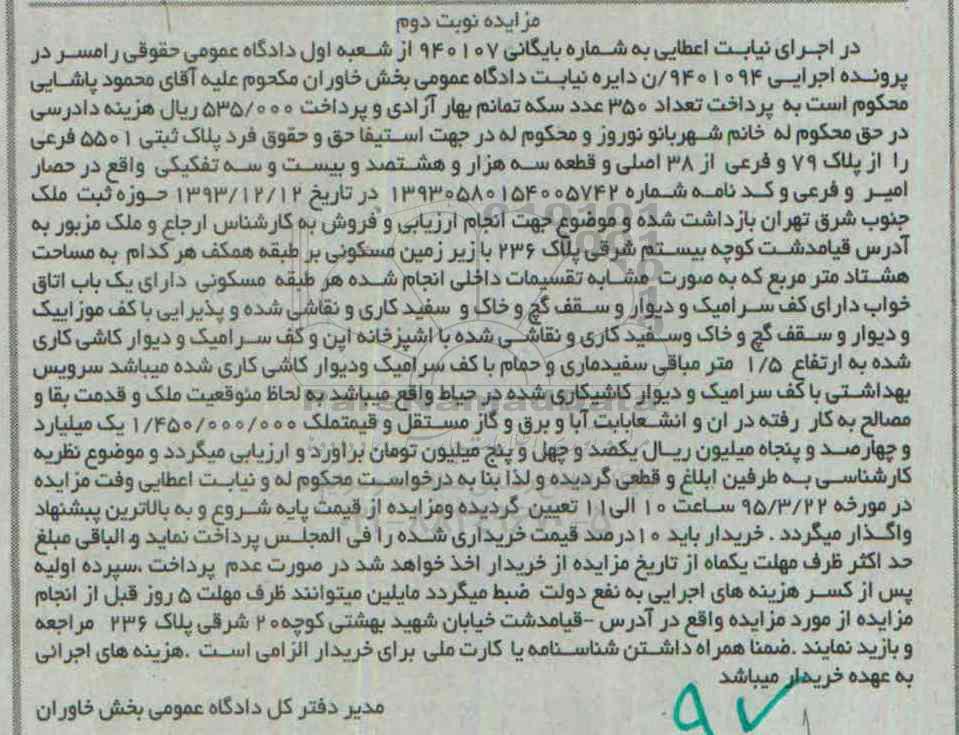 مزایده نوبت دوم
در اجرای نیابت اعطایی به شماره بایگانی ۹۴۰۱۰۷ از شعبه اول دادگاه عمومی حقوقی رامسر در
پرونده اجرایی ۹۴۰۱۰۹۴/ن دایره نیابت دادگاه عمومی بخش خاوران مکحوم علیه آقای محمود پاشایی
محکوم است به پرداخت تعداد ۳۵۰ عدد سکه تمانم بهار آزادی و پرداخت ۵۳۵/۰۰۰ ریال هزینه دادرسی
در حق محکوم له خانم شهربانو نوروز و محکوم له در جهت استیفا حق و حقوق فرد پلاک ثبتی ۵۵۰۱ فرعی
را از پلاک ۷۹ و فرعی از ۳۸ اصلی و قطعه سه هزار و هشتصد و بیست و سه تفکیکی واقع در حصار
امیر و فرعی و کد نامه شماره ۱۳۹۳۰۵۸۰۱۵۴۰۰۵۷۴۲ در تاریخ ۱۳۹۳/۱۲/۱۲ حوزه ثبت ملک
جنوب شرق تهران بازداشت شده و موضوع جهت انجام ارزیابی و فروش به کارشناس ارجاع و ملک مزبور به
آدرس قیامدشت کوچه بیستم شرقی پلاک ۲۳۶ با زیر زمین مسکونی بر طبقه همکف هر کدام به مساحت
هشتاد متر مربع که به صورت مشابه تقسیمات داخلی انجام شده هر طبقه مسکونی دارای یک باب اتاق
خواب دارای کف سرامیک و دیوار و سقف گچ و خاک و سفید کاری و نقاشی شده و پذیرایی با کف موزاییک
و دیوار و سقف گچ و خاک وسفید کاری و نقاشی شده با اشپزخانه اپن و کف سرامیک و دیوار کاشی کاری
شده به ارتفاع ۱/۵ متر مباقی سفیدماری و حمام با کف سرامیک ودیوار کاشی کاری شده میباشد سرویس
بهداشتی با کف سرامیک و دیوار کاشیکاری شده در حیاط واقع میباشد به لحاظ منوقعیت ملک و قدمت بقا و
مصالح به کار رفته در ان و انشعابابت آبا و برق و گاز مستقل و قیمتملک ۱/۴۵۰/۰۰۰/۰۰۰ یک میلیارد
و چهارصد و پنجاه میلیون ریال یکصد و چهل و پنج میلیون تومان براورد و ارزیابی میگردد و موضوع نظریه
کارشناسی به طرفین ابلاغ و قطعی گردیده و لذا بنا به درخواست محکوم له و نیابت اعطایی وفت مزایده
در مورخه ۹۵/۳/۲۲ ساعت ۱۰ الی۱۱ تعیین گردیده ومزایده از قیمت پایه شروع و به بالاترین پیشنهاد
واگذار میگردد . خریدار باید ۱۰درصد قیمت خریداری شده را فی المجلس پرداخت نماید و الباقی مبلغ
حد اکثر ظرف مهلت یکماه از تاریخ مزایده از خریدار اخذ خواهد شد در صورت عدم پرداخت ،سپرده اولیه
پس از کسر هزینه های اجرایی به نفع دولت ضبط میگردد مایلین میتوانند ظرف مهلت ۵ روز قبل از انجام
مزایده از مورد مزایده واقع در آدرس -قیامدشت خیابان شهید بهشتی کوچه۲۰ شرقی پلاک ۲۳۶ مراجعه
و بازید نمایند .ضمنا همراه داشتن شناسنامه یا کارت ملی برای خریدار الزامی است .هزینه های اجرائی
به عهده خریدار میباشد
مدیر دفتر کل دادگاه عمومی بخش خاوران